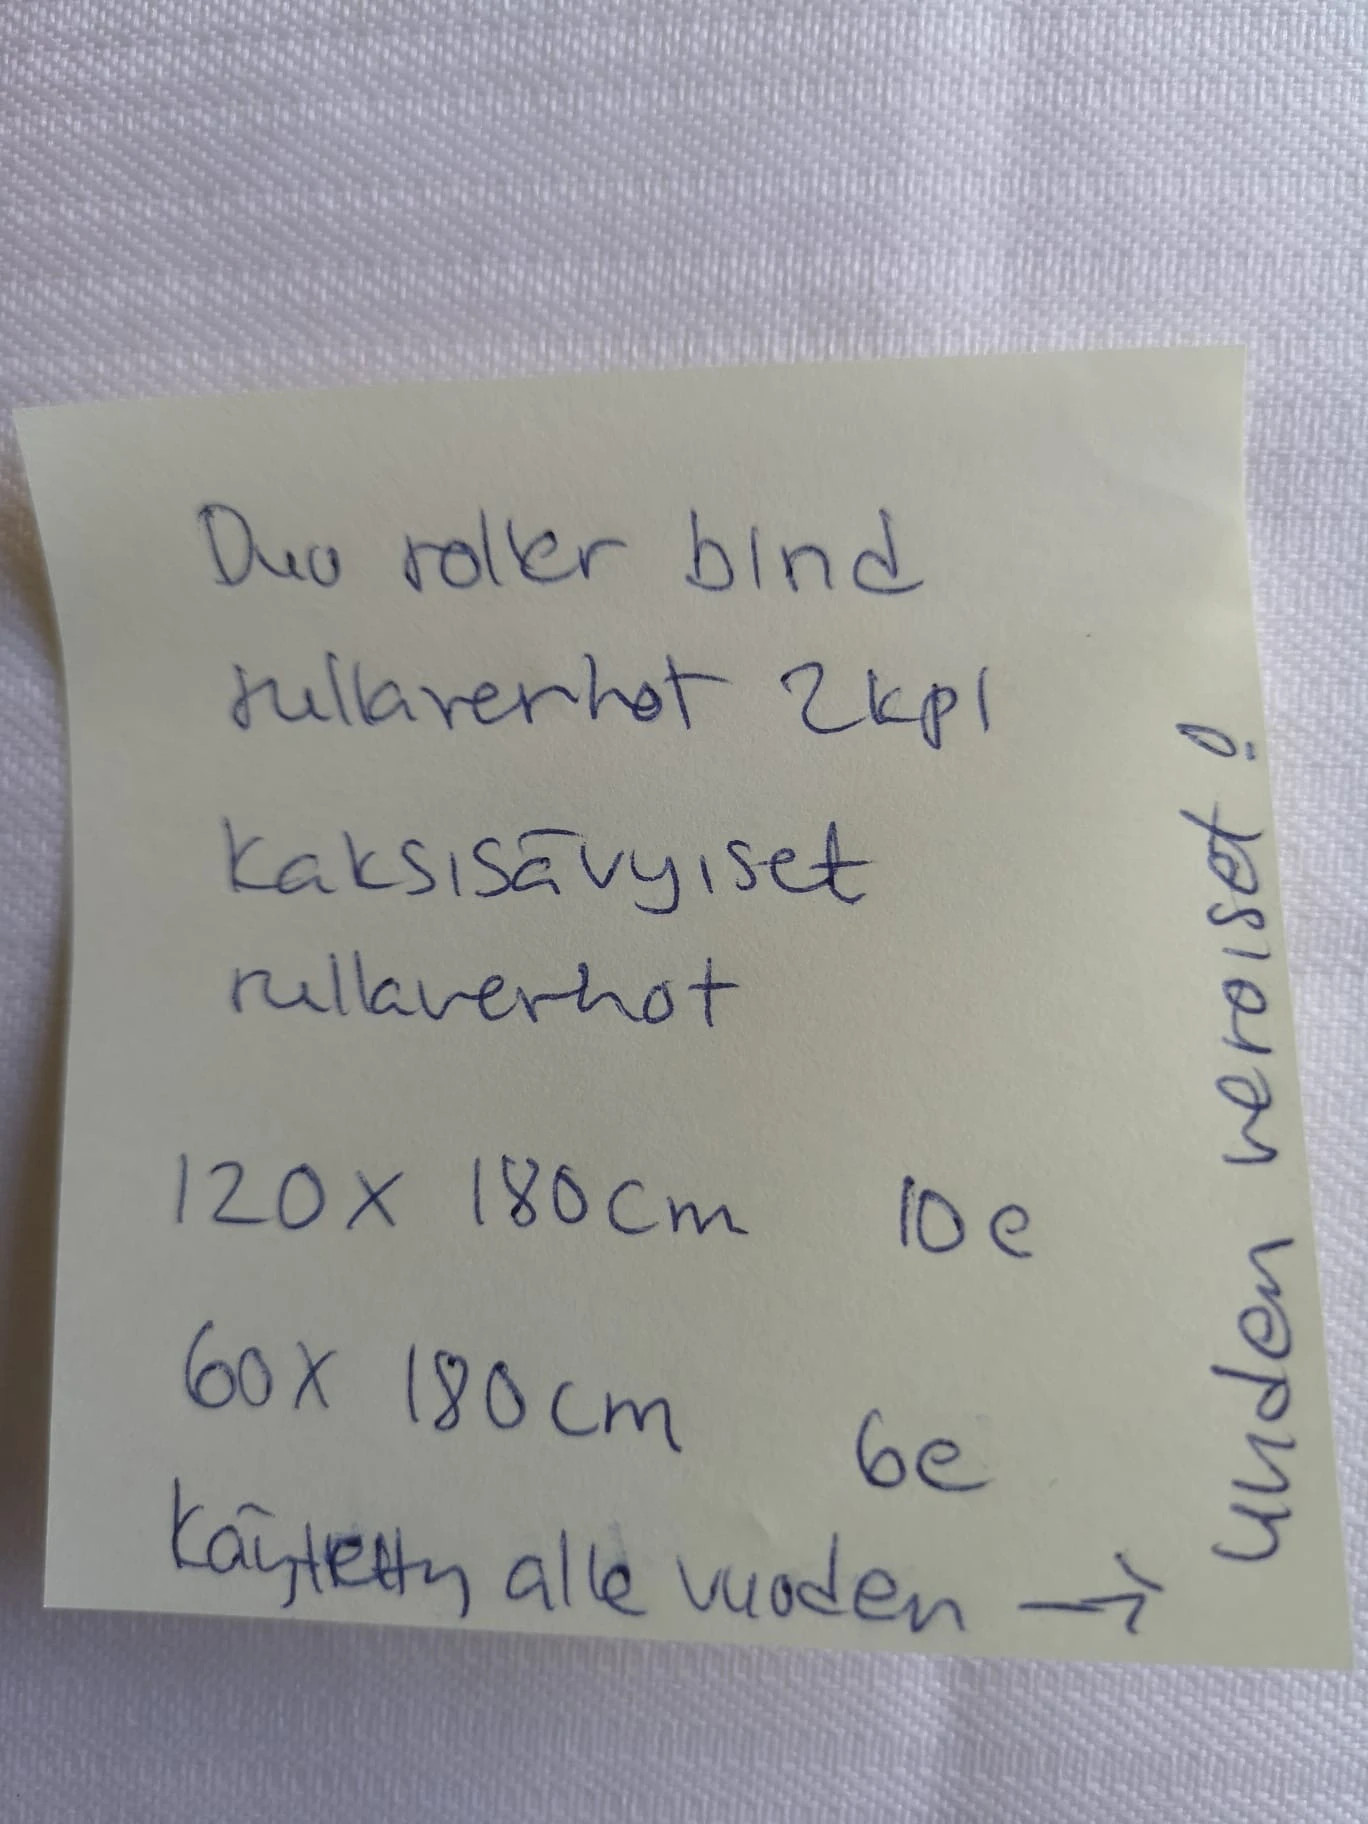 Duo roller blnd
rullaverhot 2kpl
kaksisävyiset
rullaverhot
120x 180cm 10e
60x 180cm 6e
Käytetty alle vuoden →
uuden veroiset!